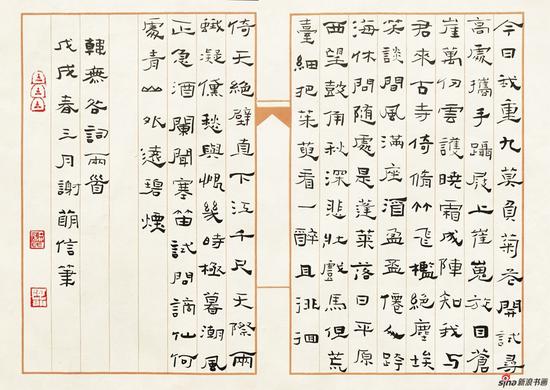 今日我重九莫負菊花開試尋
高處攜手躡屐上崔嵬放目蒼
崖萬仞雲護曉霜成陣知我與
君來古寺倚脩竹飛檻絕塵埃
笑談間風滿座酒盈盃僊人跨
海休問隨處是蓬萊落日平原
西望鼓角秋深悲壯戲馬但荒
臺細把茱萸看一醉且徘徊
倚天絕壁直下江千尺天際兩
蛾凝黛愁與恨幾時極暮潮風
正急酒闌聞塞笛試問謫仙何
處青山外遠碧煙
韓無咎詞兩首
戊戌春三月謝萌信筆
sina新浪书画